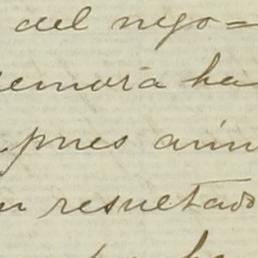 del nego=
emora ha
pues aún
n resultado